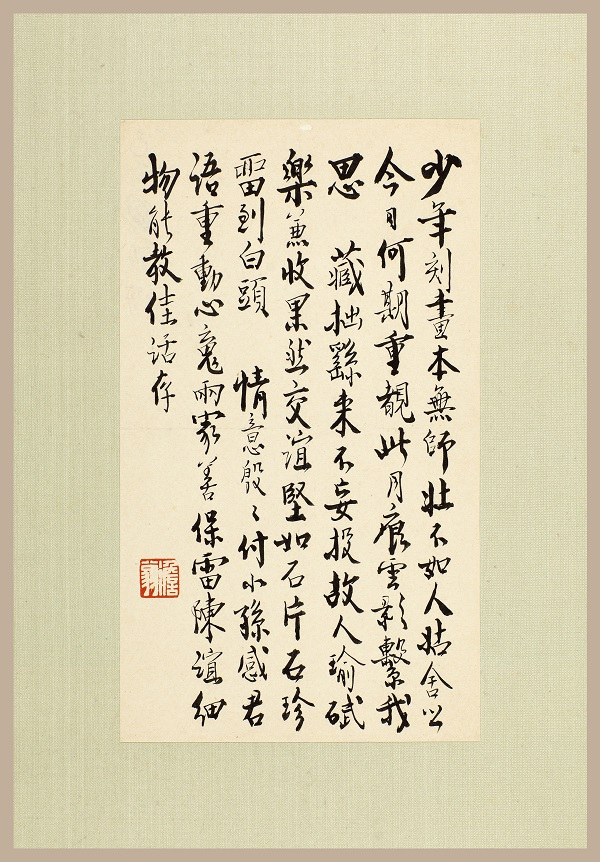 少年刻畫本無師壯不如人姑舍之
今日何期重覩此月痕雲影繫我
思　藏拙繇來不妄投故人瑜珷
樂兼收果然交誼堅如石片石珍
留到白頭　情意殷〻付小孫感君
語重動心魂兩家善保雷陳誼細
物能教佳話存